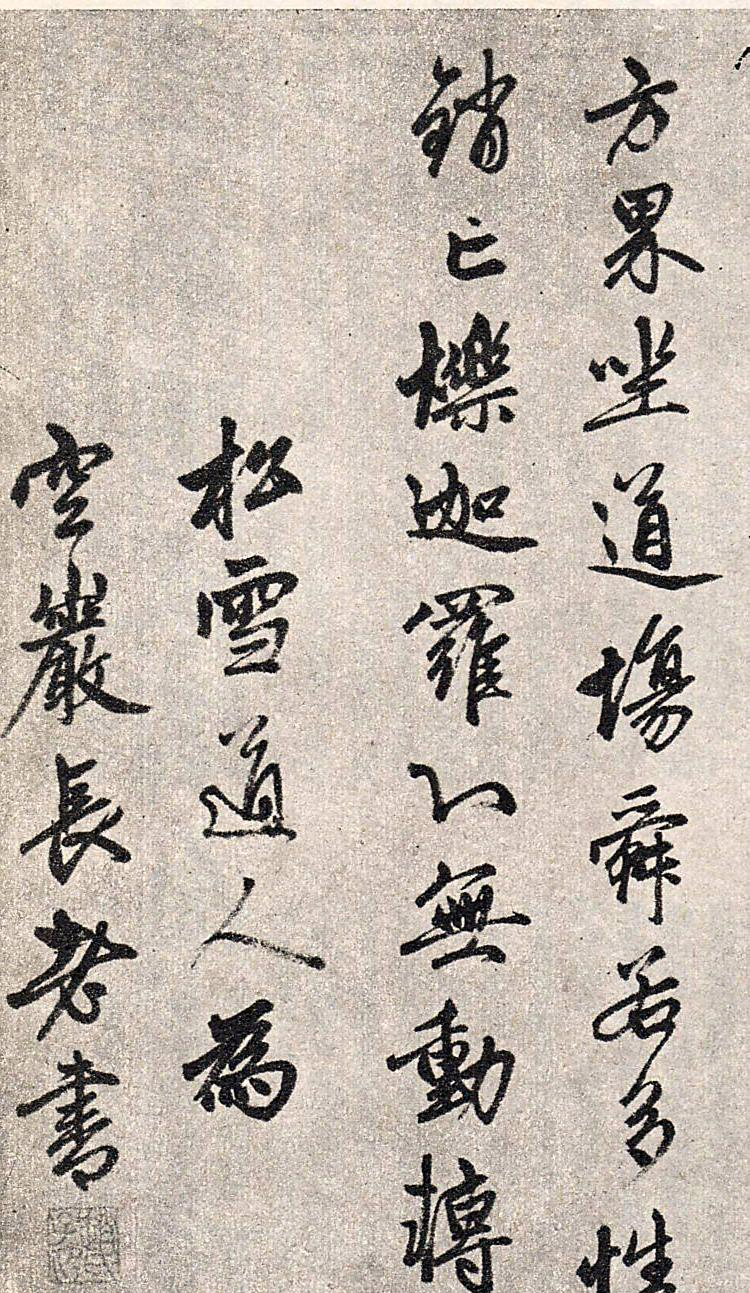 方界坐道場舜若多性
銷亡爍迦羅心無動轉
松雪道人為
空巖長老書